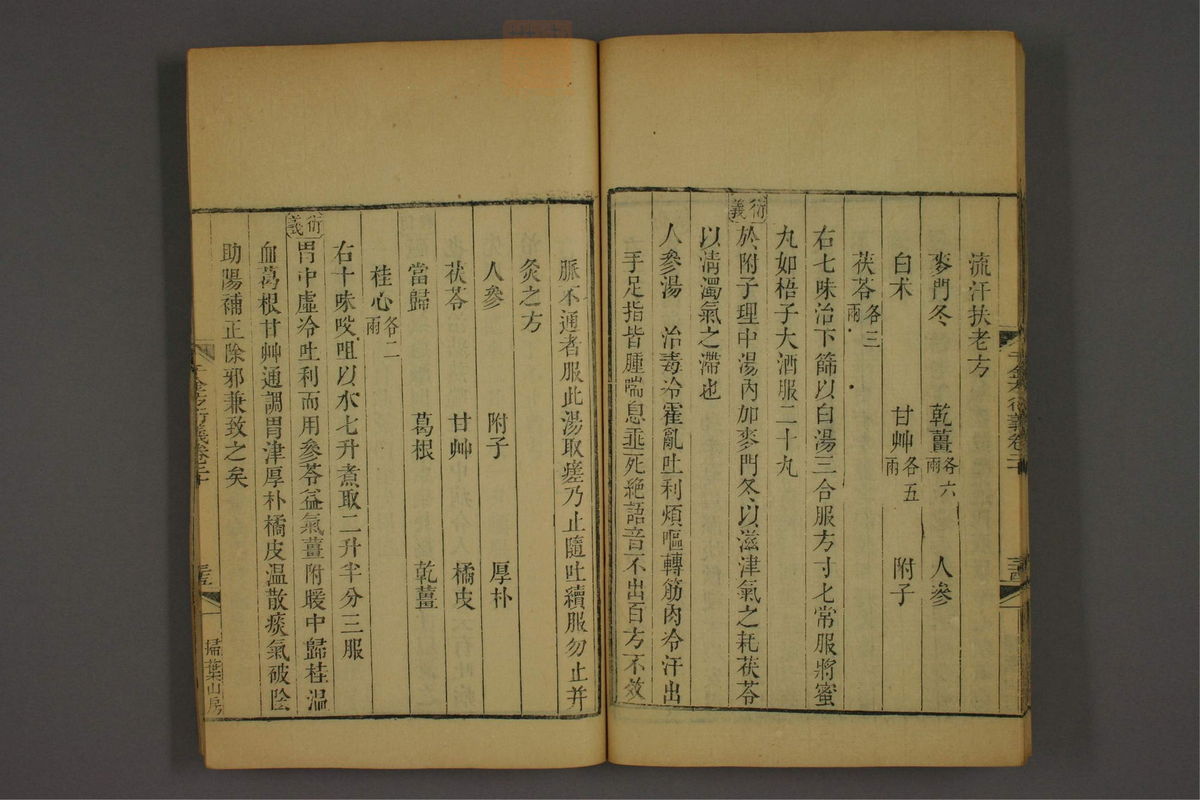 流汗扶老方
麥門冬　乾薑各六兩　人參
白术　甘艸各五兩　附子
茯苓各三兩
右七味治下篩以白湯三合服方寸匕常服將蜜
丸如梧子大酒服二十丸
衍義
於附子理中湯內加麥門冬以滋津氣之耗茯苓
以清濁氣之滯也
人參湯　治毒冷霍亂吐利煩嘔轉筋肉冷汗出
手足指皆腫喘息垂死絕語音不出百方不效
脈不通者服此湯取瘥乃止隨吐續服勿止并
灸之方
人參　附子　厚朴
茯苓　甘艸　橘皮
當歸　葛根　乾薑
桂心各二兩
右十味㕮咀以水七升煮取二升半分三服
衍義
胃中虛冷吐利而用參苓益氣薑附暖中歸桂溫
血葛根甘艸通調胃津厚朴橘皮溫散痰氣破陰
助陽補正除邪兼致之矣
千金方衍義卷二十
掃葉山房